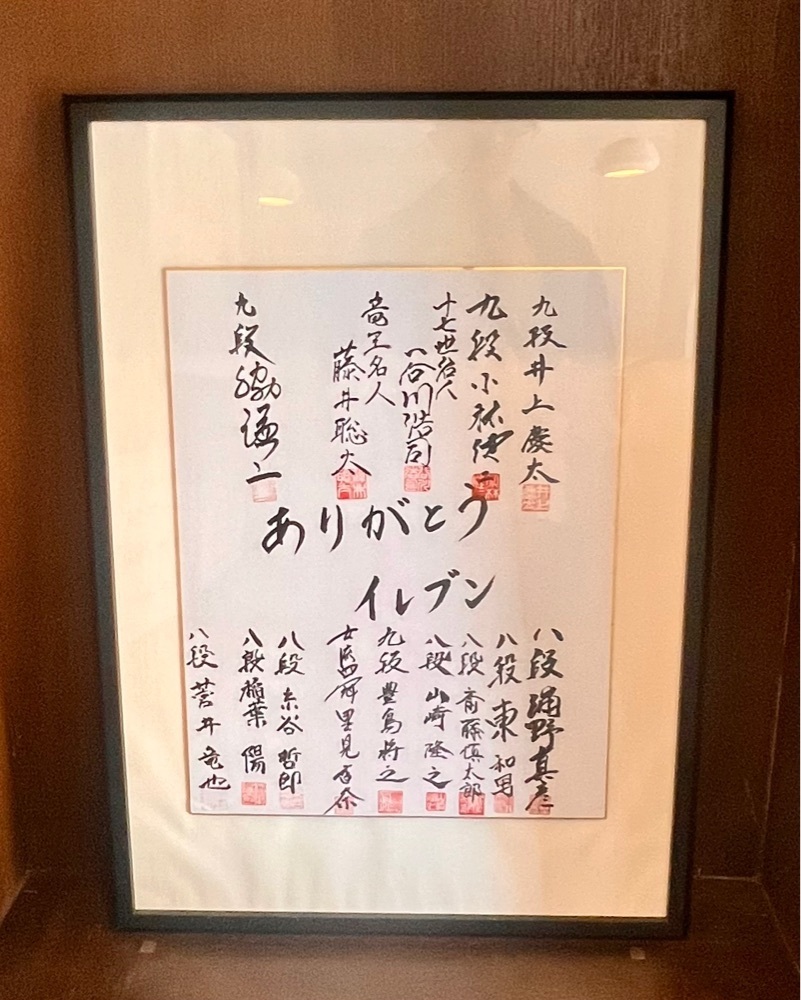 九段 井上慶太
九段 小林健二
十七世名人
谷川浩司
竜王名人
藤井聡太
九段 脇謙二
ありがとう
イレブン
八段 浦野真彦
八段 東和男
八段 斎藤慎太郎
八段 山崎隆之
九段 豊島将之
女流四冠 里見香奈
八段 糸谷哲郎
八段 稲葉陽
八段 菅井竜也